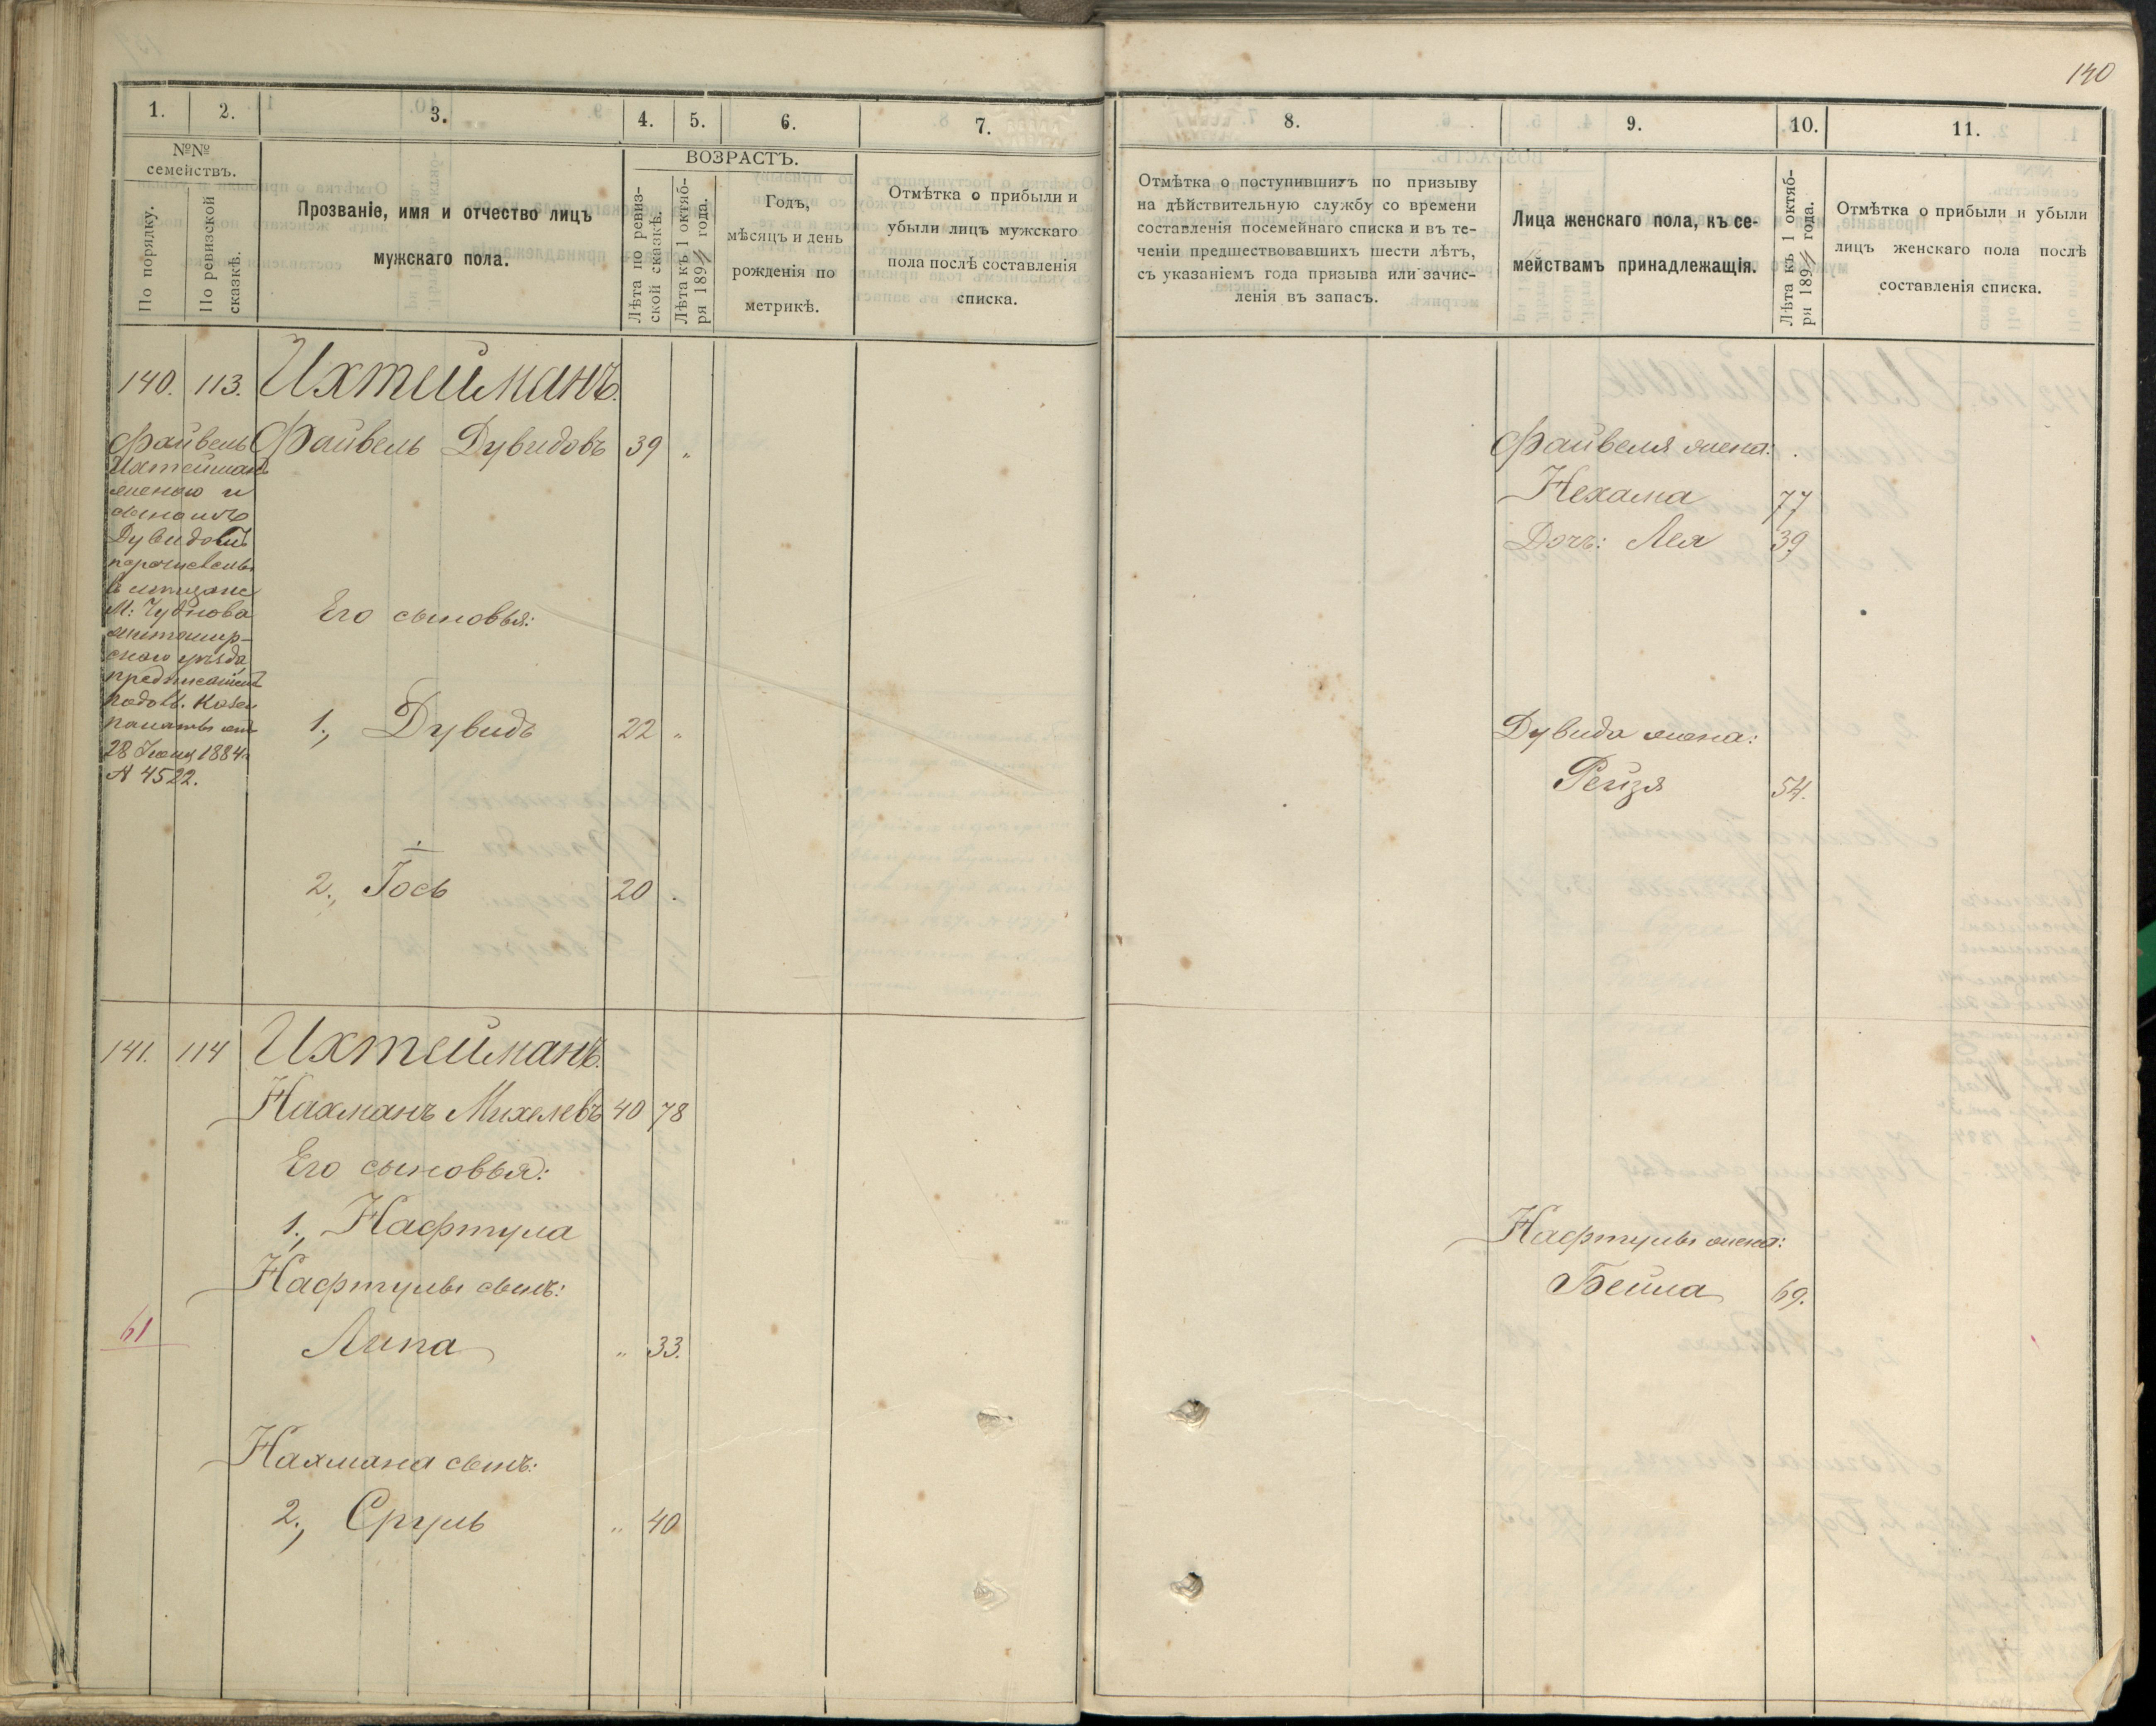 140
1.
2.
3.
4.
5.
6.
7.
8.
9.
10.
11.
№№ семействъ.
По порядку.
По ревизской сказкѣ.
Прозваніе, имя и отчество лицъ
мужскаго пола.
ВОЗРАСТЪ.
Лѣта по ревиз-
ской сказкѣ.
Лѣта къ 1 октяб-
ря 189 года.
Годъ,
мѣсяцъ и день
рожденія по
метрикѣ.
Отмѣтка о прибыли и
убыли лицъ мужскаго
пола послѣ составленія
списка.
Отмѣтка о поступившихъ по призыву
на дѣйствительную службу со времени
составленія посемейнаго списка и въ те-
ченіи предшествовавшихъ шести лѣтъ,
съ указаніемъ года призыва или зачис-
ленія въ запасъ.
Лица женскаго пола, къ се-
мействамъ принадлежащія.
Лѣта къ 1 октяб-
ря 189 года.
Отмѣтка о прибыли и убыли
лицъ женскаго пола послѣ
составленія списка.
140. 113. Ихтейманъ.
Файвель Дувидовъ 39 "
Файвель
Ихтейманъ
женою и
сыномъ
Дувидомъ
М: Чуднова
житомир-
скаго уѣзда
28 Іюня 1884 г.
№ 4522.
Файвеля жена:
Нехама 77
Дочь: Лея 39
Его сыновья:
1., Дувидъ 22 "
Дувида жена:
Рейзя 54.
2., Іось 20
141. 114 Ихтейманъ.
Нахманъ Михелевъ 40 78
Его сыновья:
1., Нафтула
Нафтулы жена:
Нафтулы сынъ:
Бейла 69.
61
Липа " 33.
Нахмана сынъ:
2., Сруль " 40